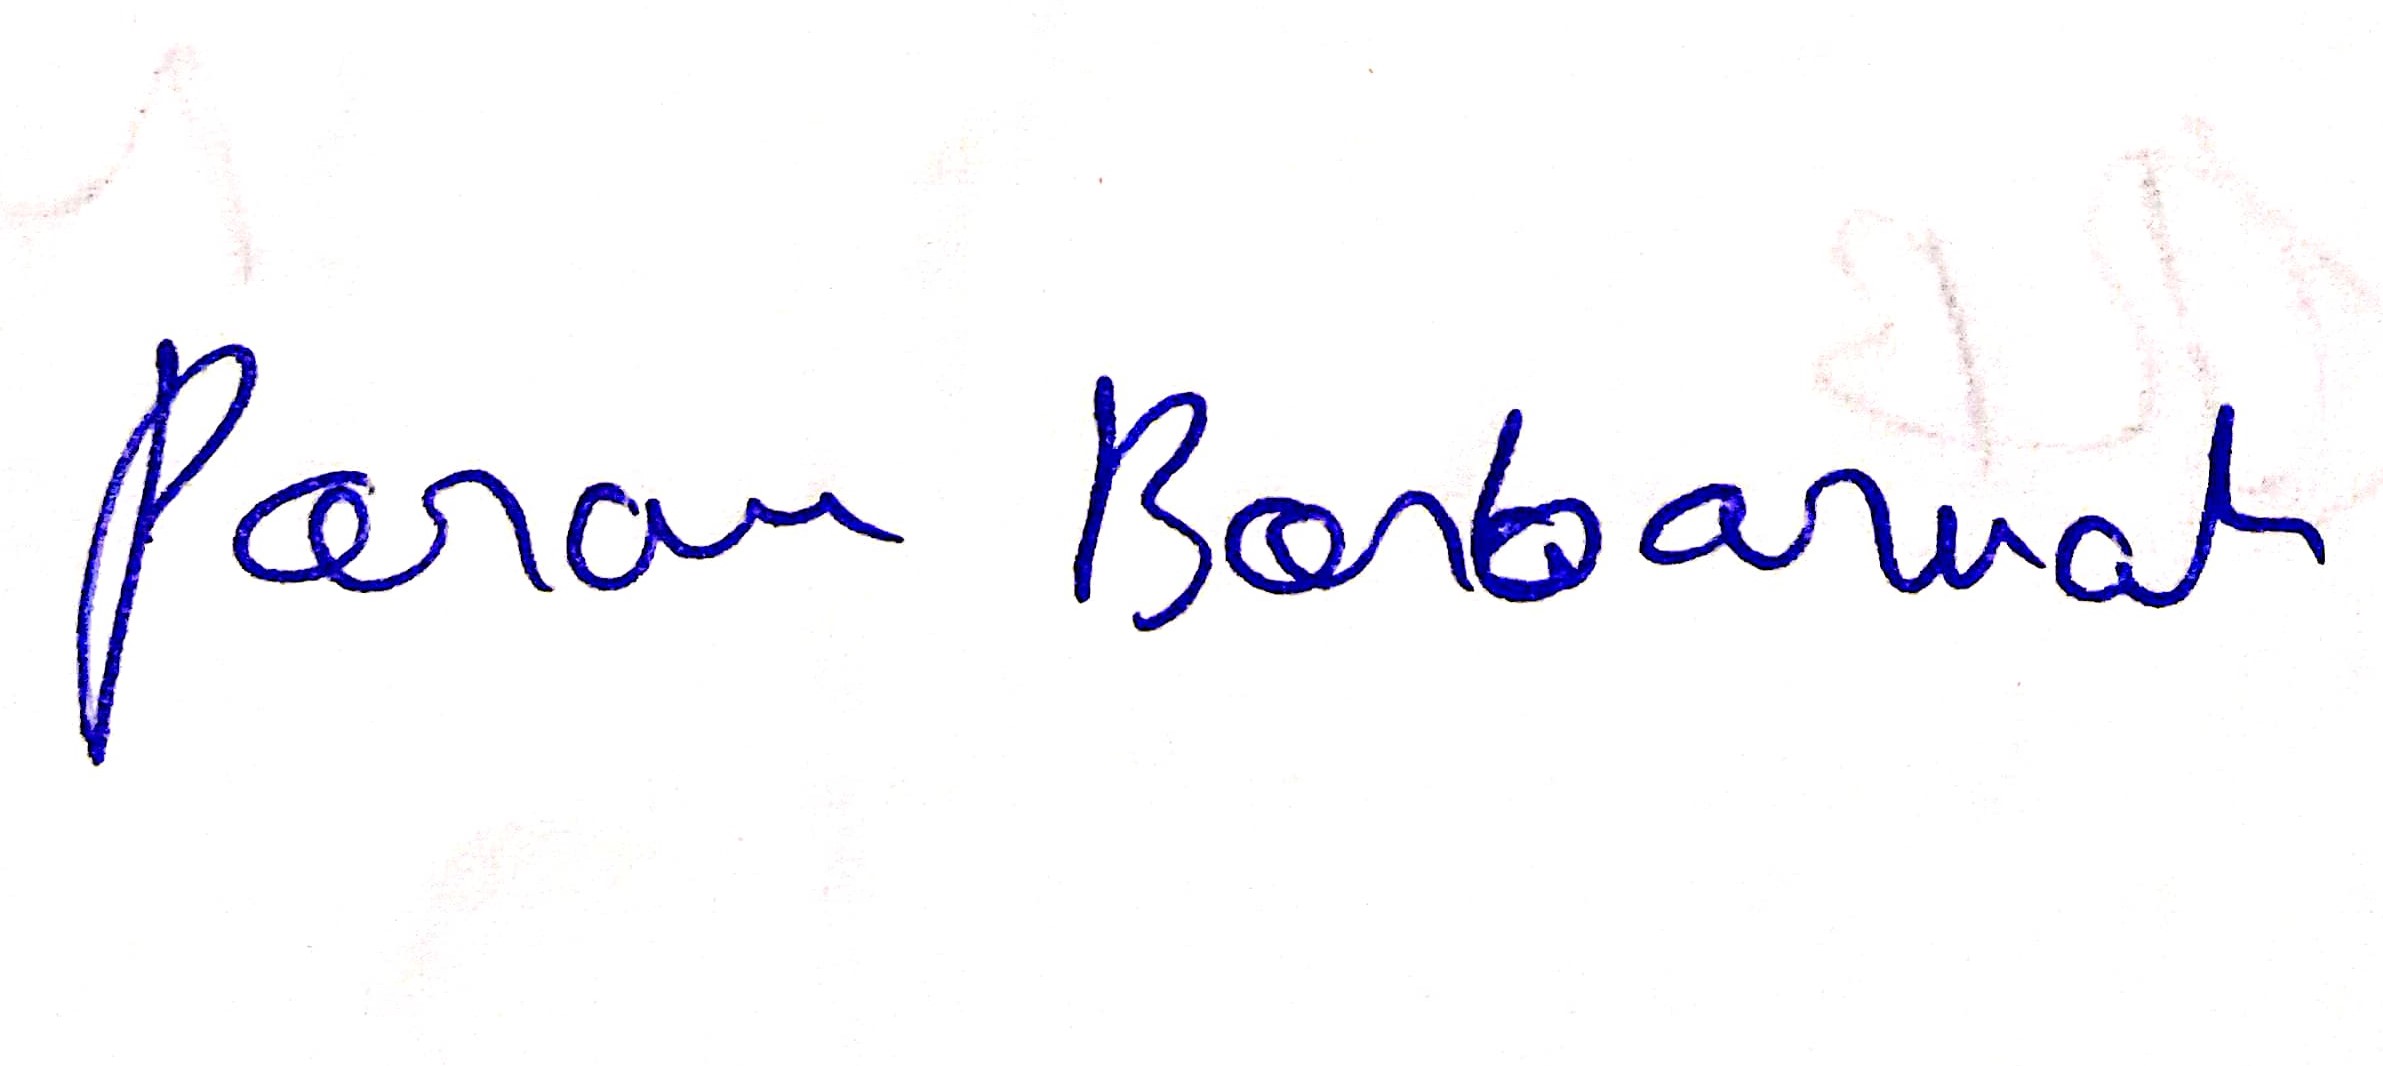 Param Borbaruah